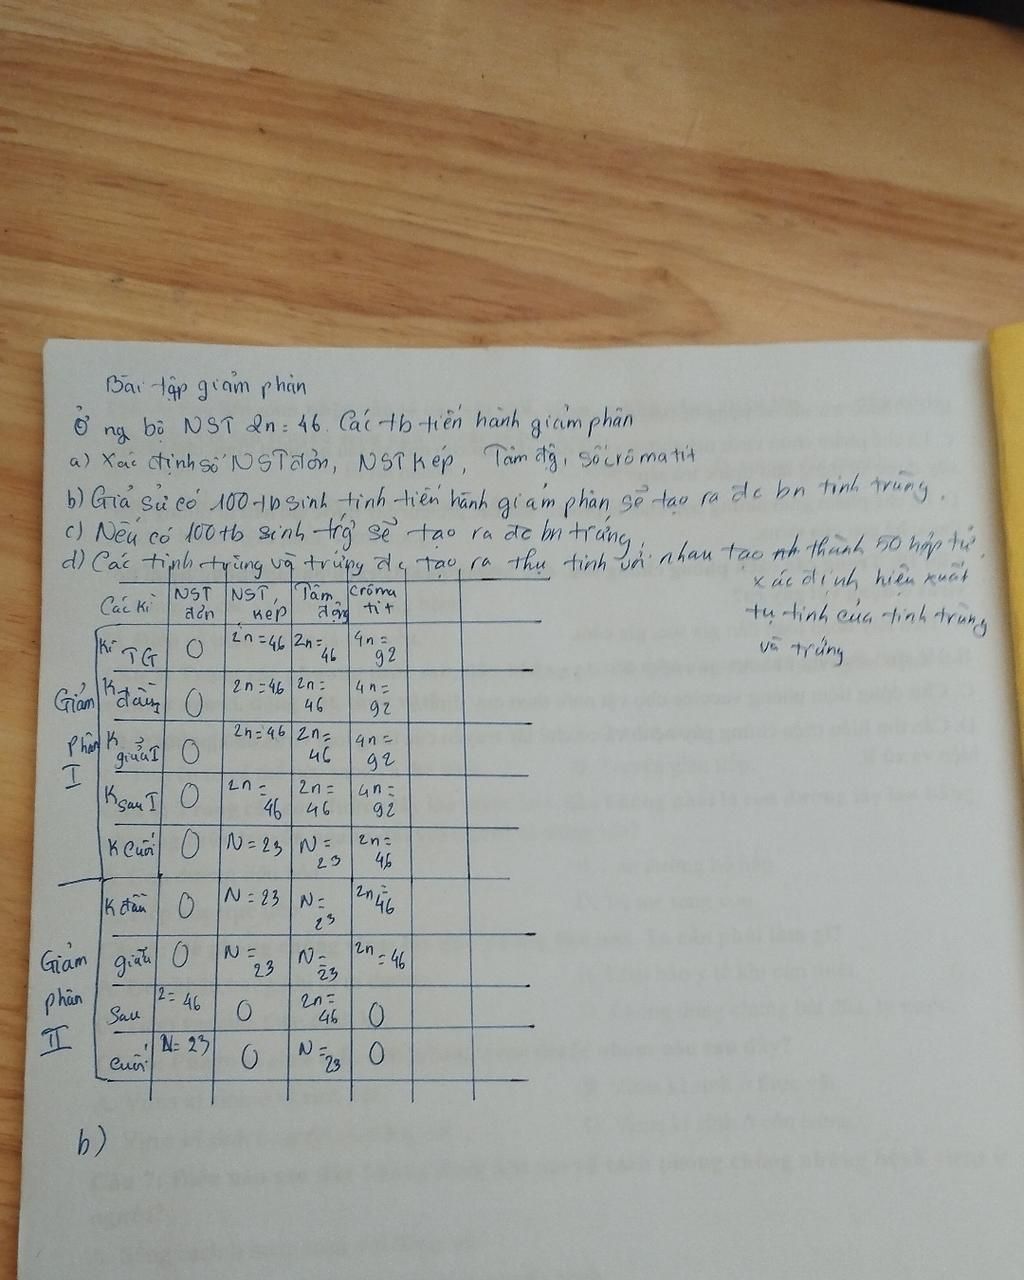 Bài tập giảm phân
Ở ng bộ NST 2n = 46. Các tb tiến hành giảm phân
a) Xác định số NST đơn, NST kép, Tâm độg, số crômatit
b) Giả sử có 100 tb sinh tinh tiến hành giảm phân sẽ tạo ra đc bn tinh trùng.
c) Nếu có 100 tb sinh trứg sẽ tạo ra đc bn trứng,
d) Các tinh trùng và trứng đc tạo ra thụ tinh với nhau tạo thành 50 hợp tử.
xác định hiệu xuất
tụ tinh của tinh trùng
và trứng
Các kì NST đơn NST kép Tâm độg crôma tit
Giảm phân I
Kì TG 0 2n = 46 2n = 46 4n = 92
K đầu I 0 2n = 46 2n = 46 4n = 92
K giữa I 0 2n = 46 2n = 46 4n = 92
K sau I 0 2n = 46 2n = 46 4n = 92
K cuối 0 N = 23 N = 23 2n = 46
Giảm phân II
K đầu 0 N = 23 N = 23 2n = 46
giữa 0 N = 23 N = 23 2n = 46
Sau 2 = 46 0 2n = 46 0
Cuối N = 23 0 N = 23 0
b)